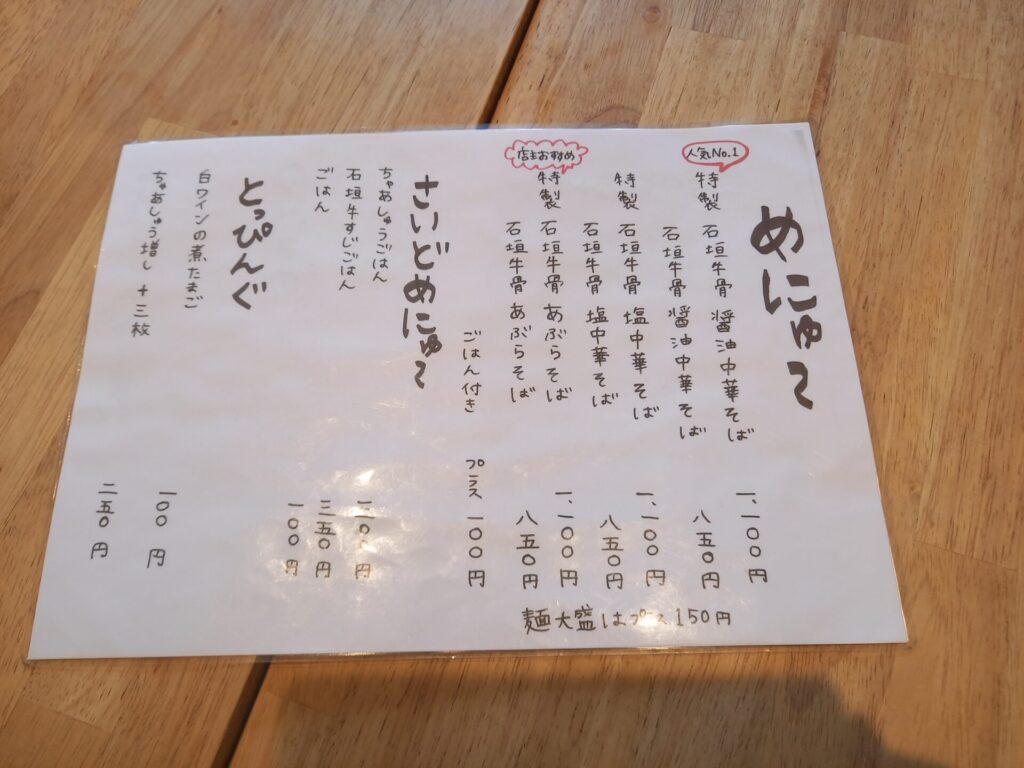 めにゅー
人気No.1
特製 石垣牛骨 醤油中華そば 一、一〇〇円
石垣牛骨 醤油中華そば 八五〇円
特製 石垣牛骨 塩中華そば 一、一〇〇円
石垣牛骨 塩中華そば 八五〇円
店主おすすめ
特製 石垣牛骨 あぶらそば 一、一〇〇円
石垣牛骨 あぶらそば 八五〇円
ごはん付き プラス 一〇〇円
麺大盛はプラス150円
さいどめにゅー
ちゃあしゅうごはん 円
石垣牛すじごはん 三五〇円
ごはん 一〇〇円
とっぴんぐ
白ワインの煮たまご 一〇〇円
ちゃあしゅう増し +三枚 二五〇円